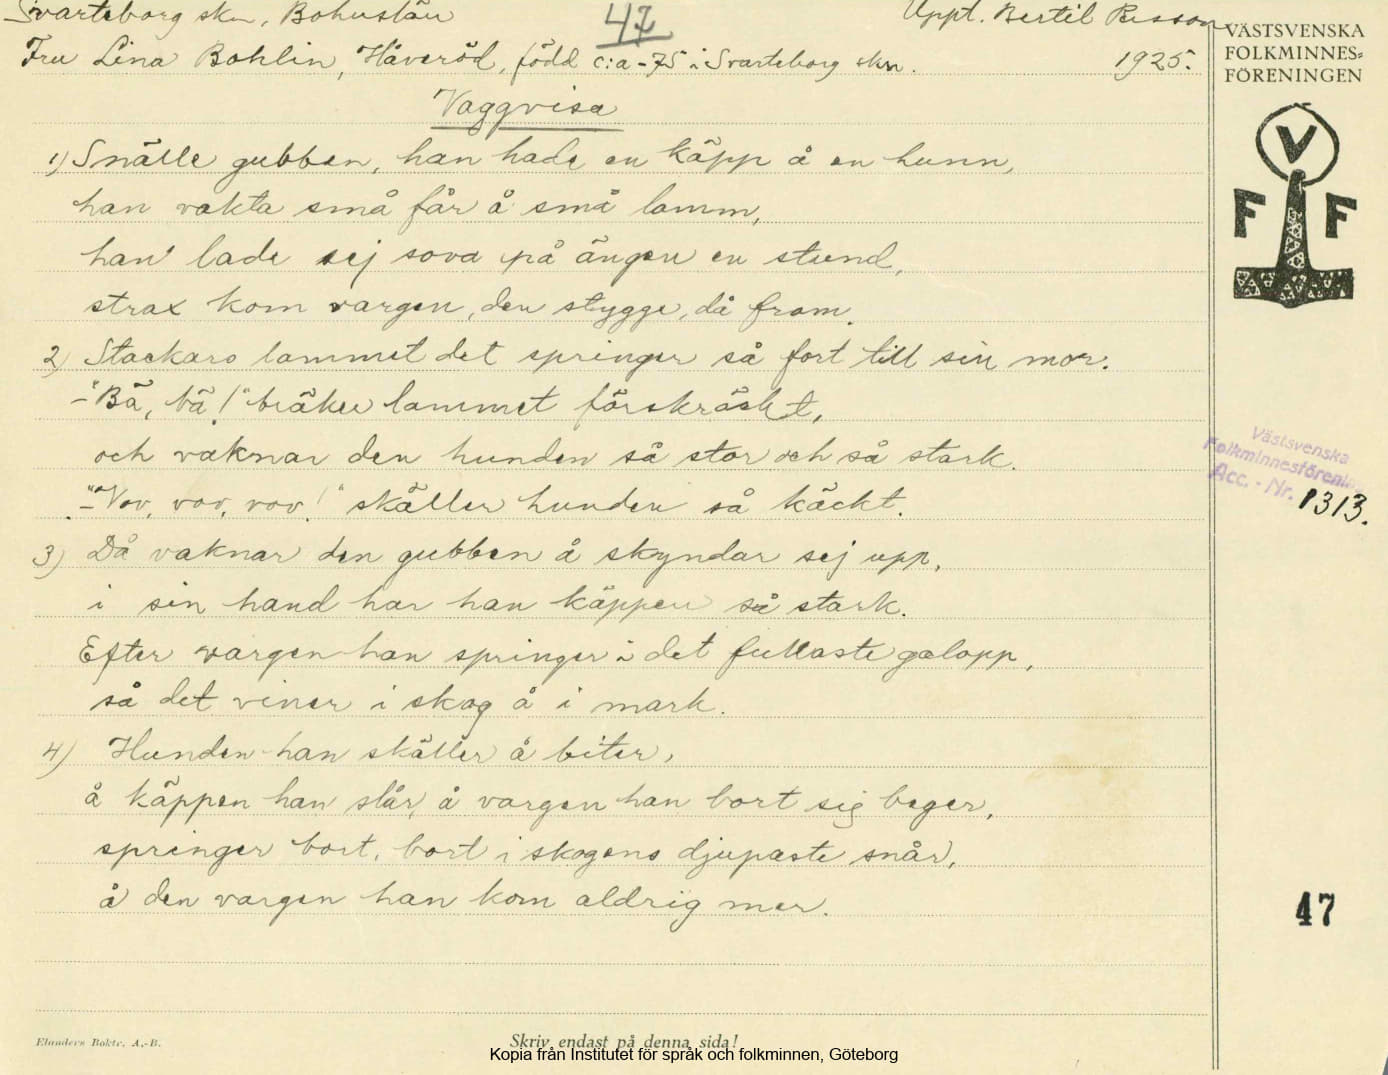 Svarteborg skn, Bohuslän
47
Uppt. Bertil Persson
Fru Lina Bohlin, Håveröd, född c:a -75 i Svarteborg skn.
1925.
VÄSTSVENSKA
FOLKMINNES=
FÖRENINGEN
Vaggvisa
V
F F
1) Snälle gubben, han hade en käpp å en hunn,
han vakta små får å små lamm,
han lade sej sova på ängen en stund,
strax kom vargen, den stygge, då fram.
2) Stackars lammet det springer så fort till sin mor.
-"Bä, bä!" bräker lammet förskräckt,
och vaknar den hunden så stor och så stark.
-"Vov, vov, vov!" skäller hunden så käckt.
Västsvenska
Folkminnesförening
Acc. - Nr. 1313.
3) Då vaknar den gubben å skyndar sej upp,
i sin hand har han käppen så stark.
Efter vargen han springer i det fullaste galopp,
så det viner i skog å i mark.
4) Hunden han skäller å biter,
å käppen han slår, å vargen han bort sig beger,
springer bort, bort i skogens djupaste snår,
å den vargen han kom aldrig mer.
47
Elanders Boktr. A.-B.
Skriv endast på denna sida!
Kopia från Institutet för språk och folkminnen, Göteborg